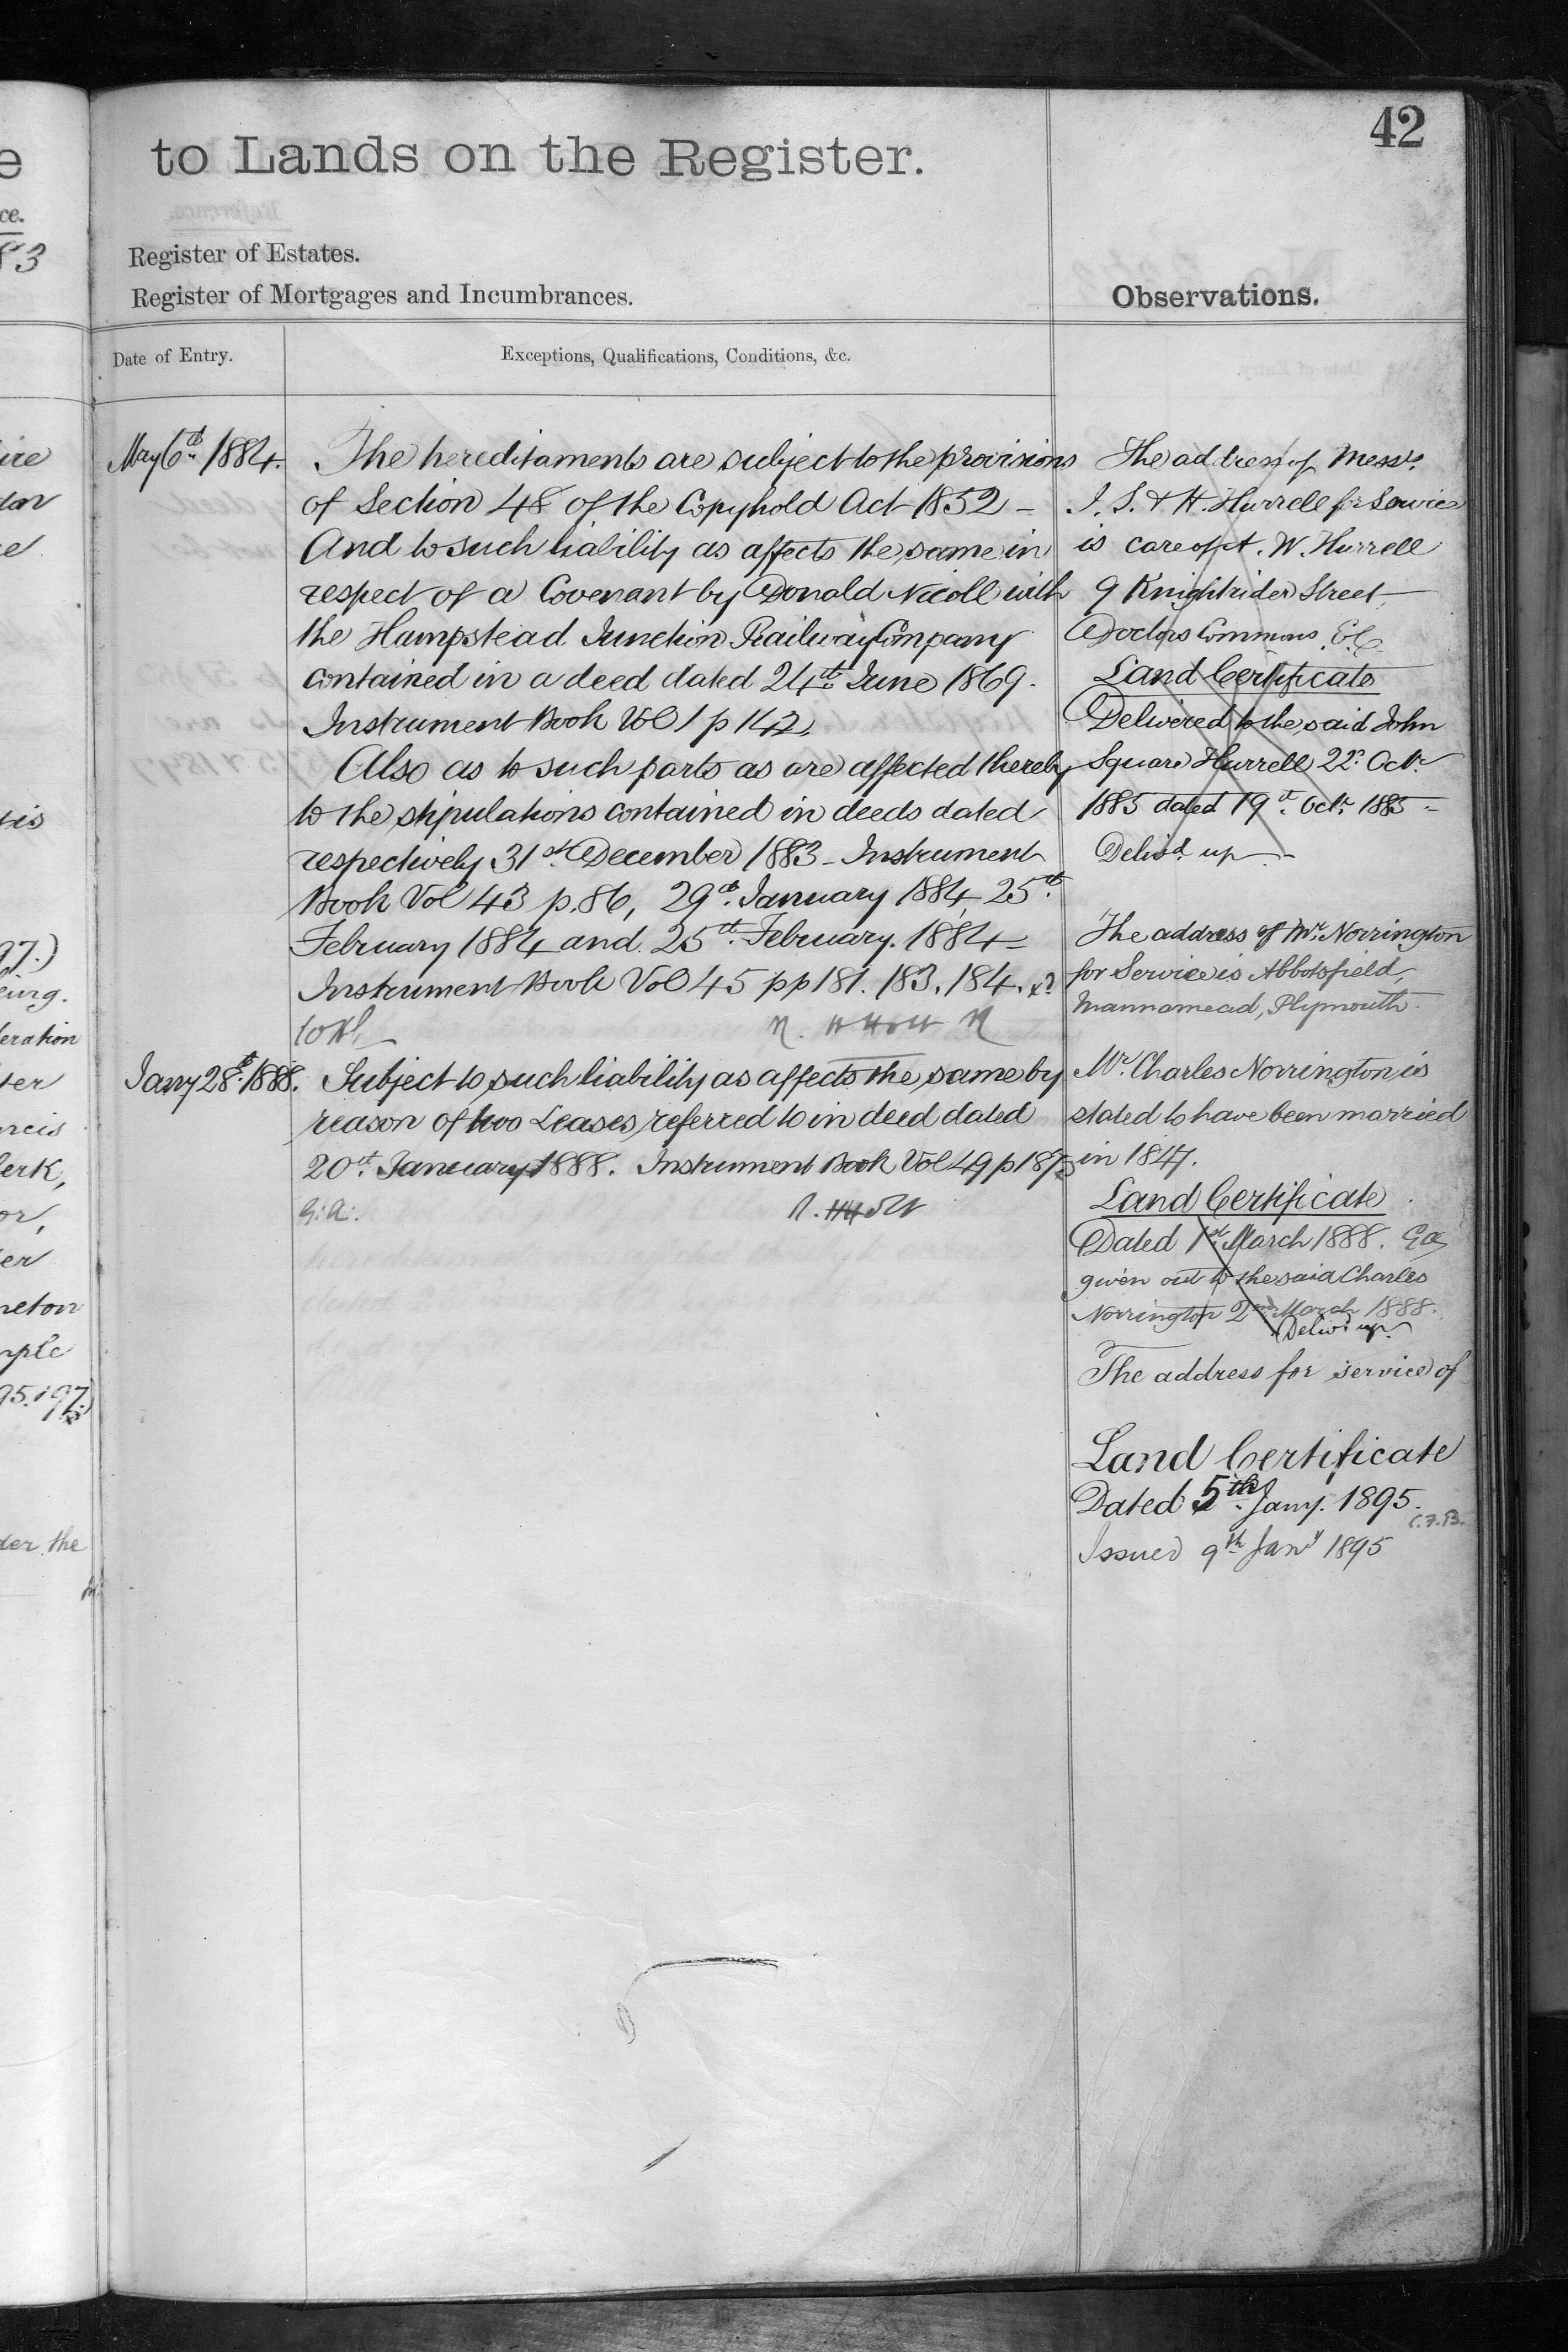 42
to Lands on the Register.
Register of Estates.
Register of Mortgages and Incumbrances.
Observations.
Date of Entry.
Exceptions, Qualifications, Conditions, &c.
May 6th 1884.
The hereditaments are subject to the provisions
of Section 48 of the Copyhold Act 1852 –
And to such liability as affects the same in
respect of a Covenant by Donald Nicoll with
the Hampstead Junction Railway Company
contained in a deed dated 24th June 1869.
Instrument Book Vol 1 p 142.
Also as to such parts as are affected thereby
to the stipulations contained in deeds dated
respectively 31st December 1883 – Instrument
Book Vol 43 p. 86, 29th January 1884, 25th
February 1884 and 25th February. 1884 –
Instrument Book Vol 45 pp 181. 183. 184.
Jany 28th 1888.
Subject to such liability as affects the same by
reason of two Leases referred to in deed dated
20th January 1888. Instrument Book Vol 49 p 187
G: A:
The address of Messrs.
J. S. & H. Hurrell for Service
is care of A. W. Hurrell
9 Knightrider Street
Doctors Commons E.C.
Land Certificate
Delivered to the said John
Square Hurrell 22d Octr
1885 dated 19th Octr 1885 –
Delivd up –
The address of Mr. Norrington
for Service is Abbotsfield,
Mannamead, Plymouth.
Mr. Charles Norrington is
stated to have been married
in 1847.
Land Certificate
Dated 1st March 1888.
given out to the said Charles
Norrington 2nd March 1888.
Delivd up.
The address for service of
Land Certificate
Dated 5th Jany. 1895.
Issued 9th Jany 1895